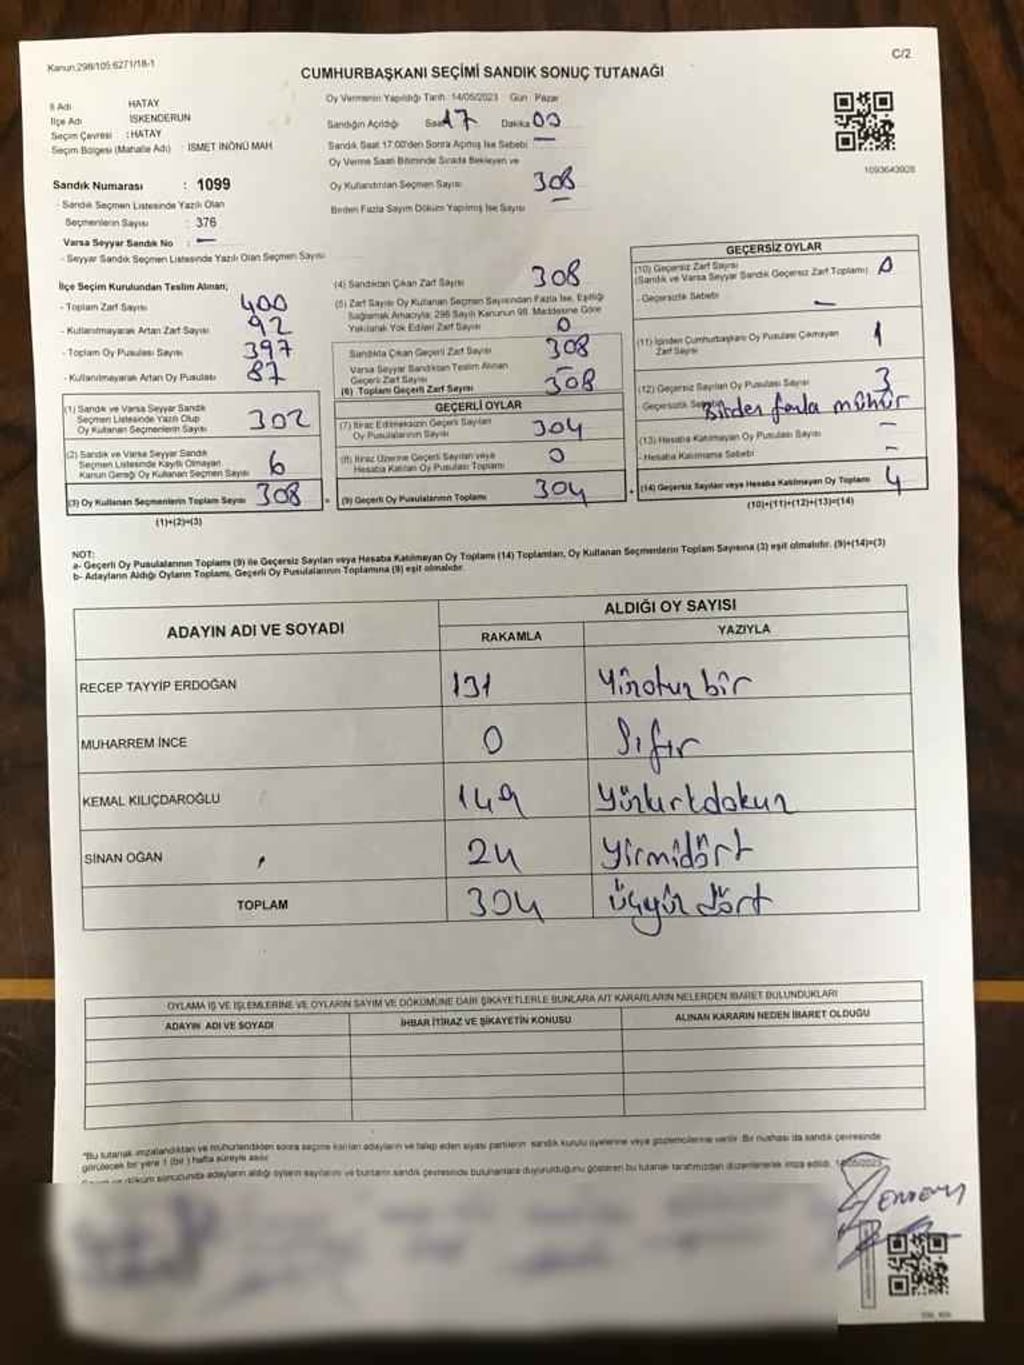 Kanun:298/105:6271/18-1
C/2
CUMHURBAŞKANI SEÇİMİ SANDIK SONUÇ TUTANAĞI
İl Adı HATAY
İlçe Adı İSKENDERUN
Seçim Çevresi : HATAY
Seçim Bölgesi (Mahalle Adı) : İSMET İNÖNÜ MAH
Sandık Numarası : 1099
- Sandık Seçmen Listesinde Yazılı Olan
Seçmenlerin Sayısı : 376
Varsa Seyyar Sandık No : —
- Seyyar Sandık Seçmen Listesinde Yazılı Olan Seçmen Sayısı
Oy Vermenin Yapıldığı Tarih: 14/05/2023 Gün : Pazar
Sandığın Açıldığı Saat 17 Dakika 00
Sandık Saat 17:00'den Sonra Açılmış İse Sebebi —
Oy Verme Saati Bitiminde Sırada Bekleyen ve
Oy Kullandırılan Seçmen Sayısı 308
Birden Fazla Sayım Döküm Yapılmış İse Sayısı —
1093643928
İlçe Seçim Kurulundan Teslim Alınan;
- Toplam Zarf Sayısı 400
- Kullanılmayarak Artan Zarf Sayısı 92
- Toplam Oy Pusulası Sayısı 397
- Kullanılmayarak Artan Oy Pusulası 87
(1) Sandık ve Varsa Seyyar Sandık
Seçmen Listesinde Yazılı Olup
Oy Kullanan Seçmenlerin Sayısı 302
(2) Sandık ve Varsa Seyyar Sandık
Seçmen Listesinde Kayıtlı Olmayan
Kanun Gereği Oy Kullanan Seçmen Sayısı 6
(3) Oy Kullanan Seçmenlerin Toplam Sayısı 308
(1)+(2)=(3)
(4) Sandıktan Çıkan Zarf Sayısı 308
(5) Zarf Sayısı Oy Kullanan Seçmen Sayısından Fazla İse, Eşitliği
Sağlamak Amacıyla; 298 Sayılı Kanunun 98. Maddesine Göre
Yakılarak Yok Edilen Zarf Sayısı 0
Sandıkta Çıkan Geçerli Zarf Sayısı 308
Varsa Seyyar Sandıktan Teslim Alınan
Geçerli Zarf Sayısı —
(6) Toplam Geçerli Zarf Sayısı 308
GEÇERLİ OYLAR
(7) İtiraz Edilmeksizin Geçerli Sayılan
Oy Pusulalarının Sayısı 304
(8) İtiraz Üzerine Geçerli Sayılan veya
Hesaba Katılan Oy Pusulası Toplamı 0
= (9) Geçerli Oy Pusulalarının Toplamı 304
GEÇERSİZ OYLAR
(10) Geçersiz Zarf Sayısı
(Sandık ve Varsa Seyyar Sandık Geçersiz Zarf Toplamı) 0
- Geçersizlik Sebebi —
(11) İçinden Cumhurbaşkanı Oy Pusulası Çıkmayan
Zarf Sayısı 1
(12) Geçersiz Sayılan Oy Pusulası Sayısı 3
Geçersizlik Sebebi Birden fazla mühür
(13) Hesaba Katılmayan Oy Pusulası Sayısı —
- Hesaba Katılmama Sebebi —
+ (14) Geçersiz Sayılan veya Hesaba Katılmayan Oy Toplamı 4
(10)+(11)+(12)+(13)=(14)
NOT:
a- Geçerli Oy Pusulalarının Toplamı (9) ile Geçersiz Sayılan veya Hesaba Katılmayan Oy Toplamı (14) Toplamları, Oy Kullanan Seçmenlerin Toplam Sayısına (3) eşit olmalıdır. (9)+(14)=(3)
b- Adayların Aldığı Oyların Toplamı, Geçerli Oy Pusulalarının Toplamına (9) eşit olmalıdır.
ADAYIN ADI VE SOYADI
ALDIĞI OY SAYISI
RAKAMLA YAZIYLA
RECEP TAYYİP ERDOĞAN 131 Yüzotuzbir
MUHARREM İNCE 0 Sıfır
KEMAL KILIÇDAROĞLU 149 Yüzkırkdokuz
SİNAN OĞAN 24 Yirmidört
TOPLAM 304 üçyüz dört
OYLAMA İŞ VE İŞLEMLERİNE VE OYLARIN SAYIM VE DÖKÜMÜNE DAİR ŞİKAYETLERLE BUNLARA AİT KARARLARIN NELERDEN İBARET BULUNDUKLARI
ADAYIN ADI VE SOYADI İHBAR İTİRAZ VE ŞİKAYETİN KONUSU ALINAN KARARIN NEDEN İBARET OLDUĞU
"Bu tutanak imzalandıktan ve mühürlendikten sonra seçime katılan adayların ve talep eden siyasi partilerin sandık kurulu üyelerine veya gözlemcilerine verilir. Bir nüshası da sandık çevresinde
görülecek bir yere 1 (bir) hafta süreyle asılır.
döküm sonucunda adayların aldığı oyların sayılarını ve bunların sandık çevresinde bulunanlara duyurulduğunu gösteren bu tutanak tarafımızdan düzenlenerek imza edildi. 14/05/2023